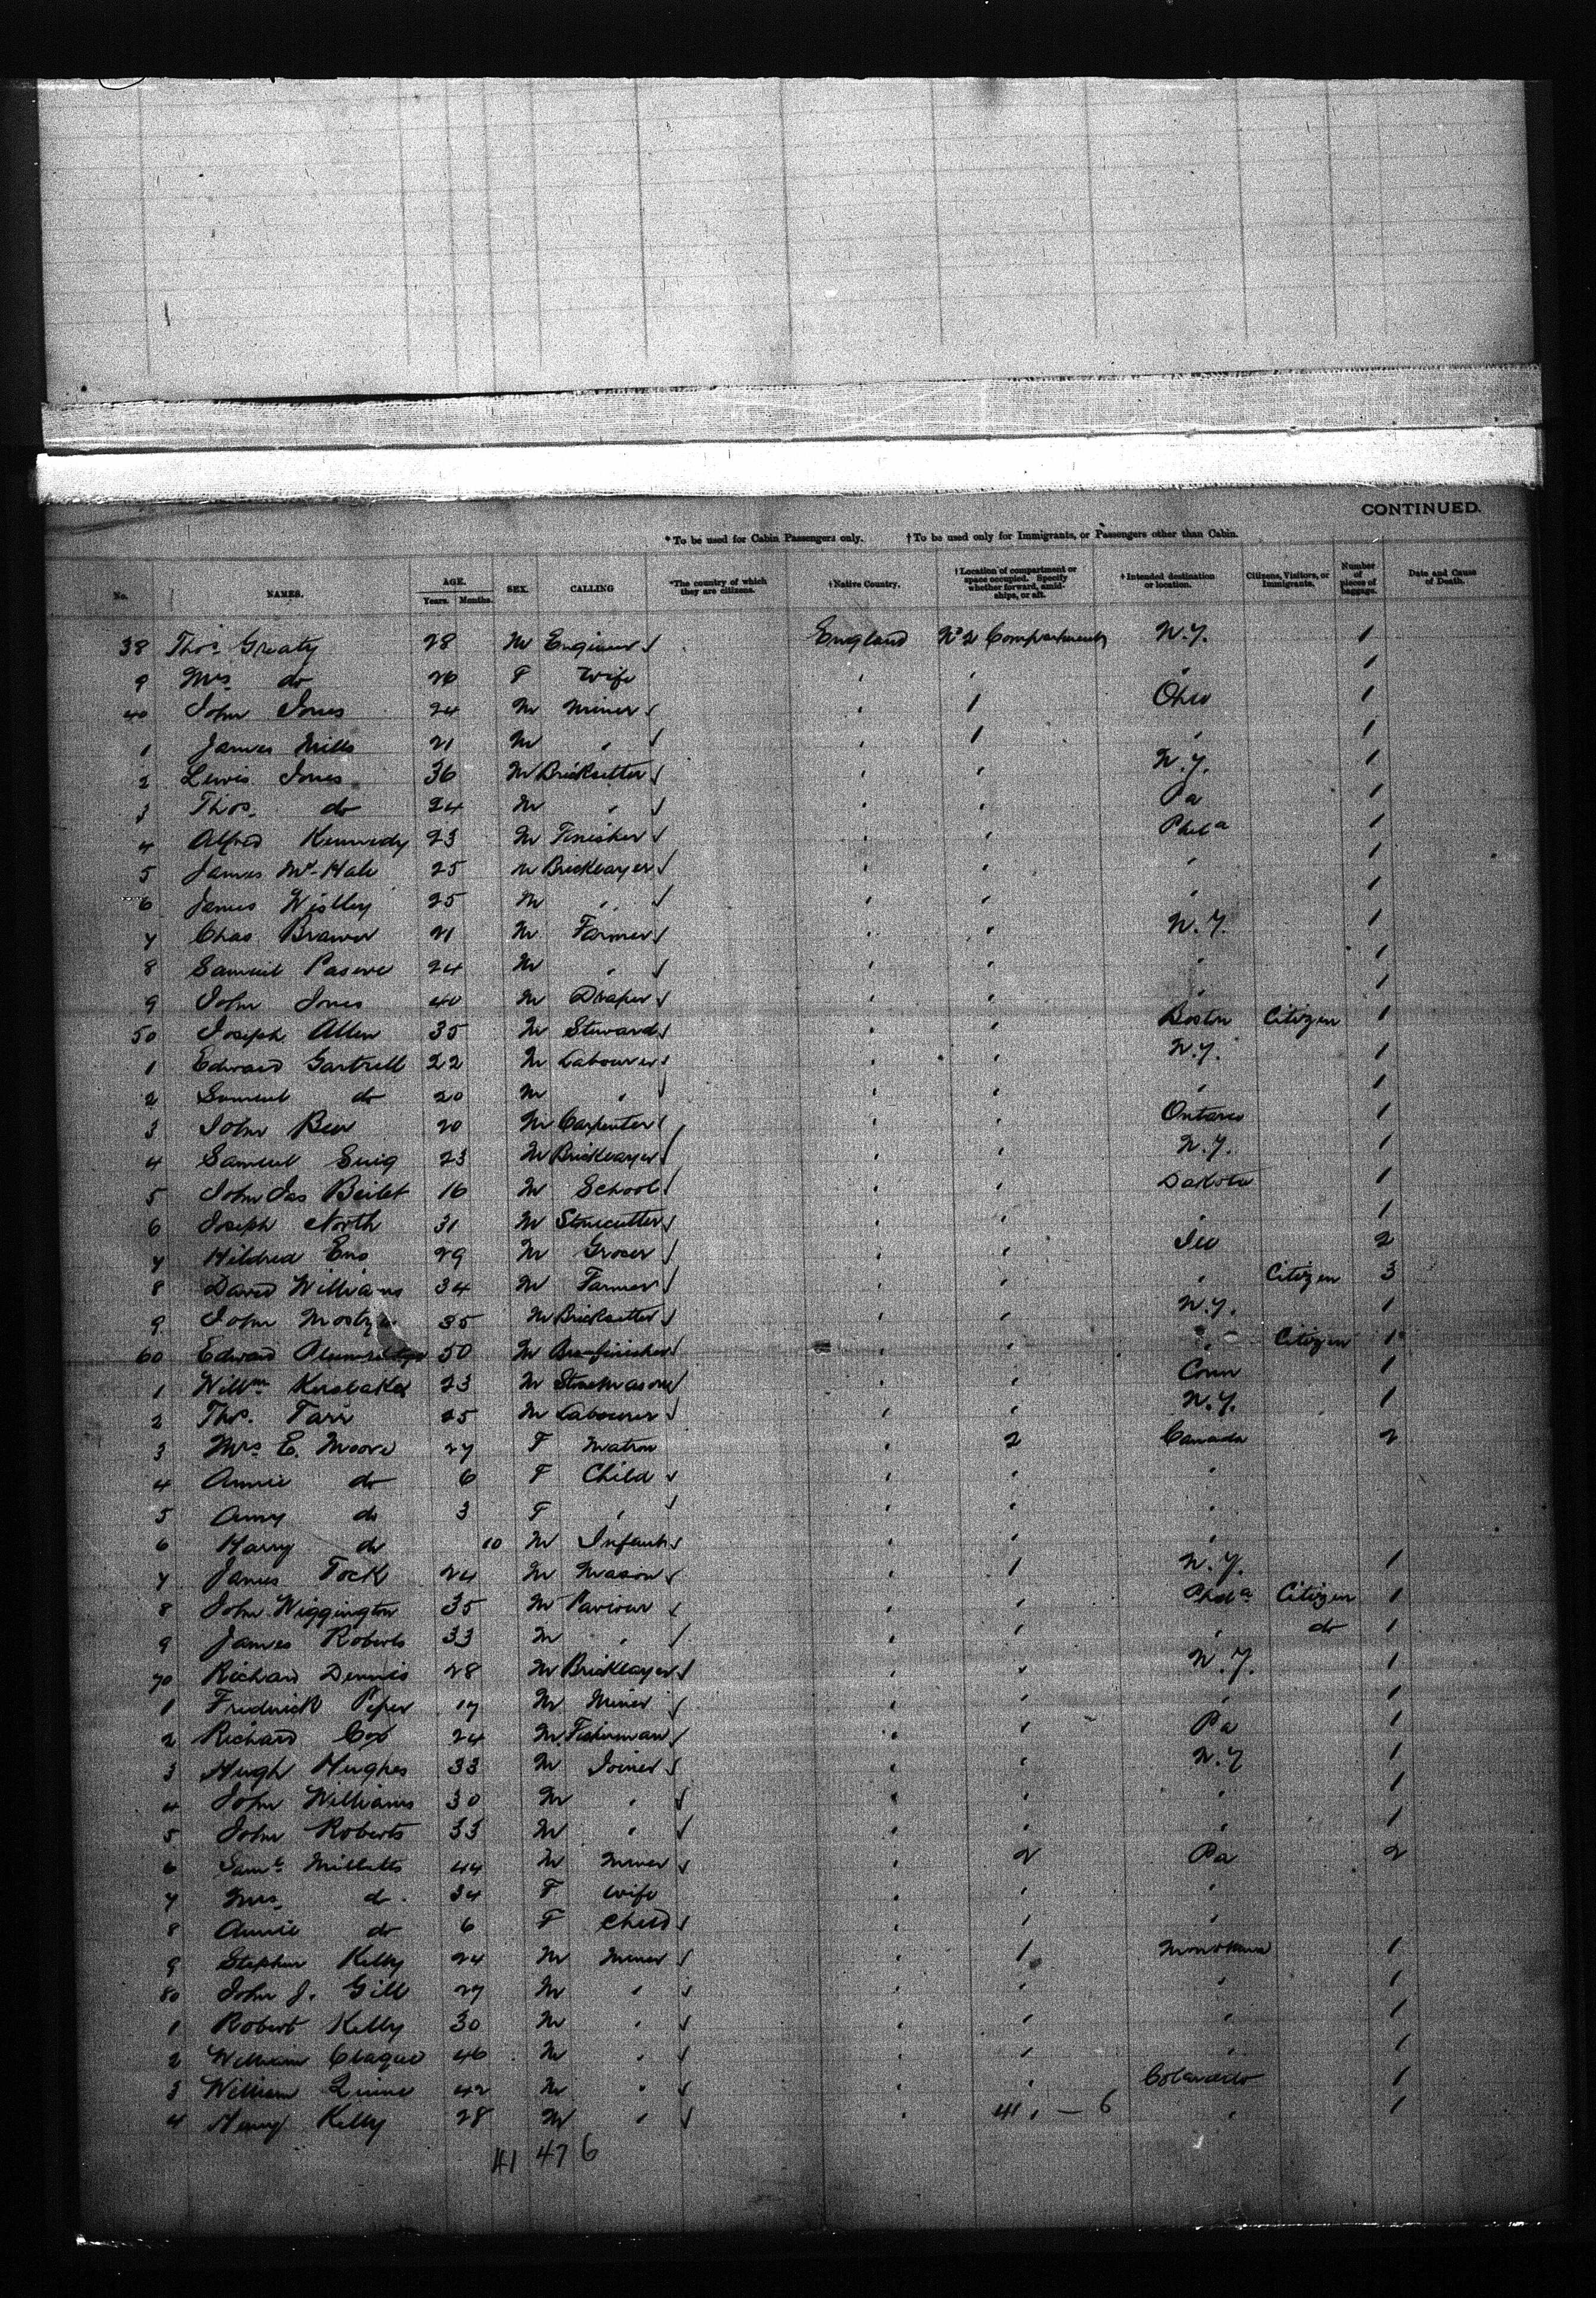 CONTINUED.
* To be used for Cabin Passengers only. † To be used only for Immigrants, or Passengers other than Cabin.
No. NAMES. AGE. Years. Months. SEX. CALLING *The country of which they are citizens. †Native Country. †Location of compartment or space occupied. Specify whether forward, amidships, or aft. †Intended destination or location. Citizens, Visitors, or Immigrants. Number of pieces of baggage. Date and Cause of Death.
38 Thos Greaty 28 M Engineer England No 2 Compartment N.Y. 1
9 Mrs do 26 F Wife " " " 1
40 John Jones 24 M Miner " 1 Ohio 1
1 James Mills 21 M " " 1 " 1
2 Lewis Jones 36 M Bricksetter " " N.Y. 1
3 Thos. do 24 M " " " Pa 1
4 Alfred Kennedy 23 M Finisher " " Phila 1
5 James McHale 25 M Bricklayer " " " 1
6 James 25 M " " " " 1
7 Chas Brawer 21 M Farmer " " N.Y. 1
8 Samuel 24 M " " " " 1
9 John Jones 40 M Draper " " " 1
50 Joseph Allen 35 M Steward " " Boston Citizen 1
1 Edward Gartrell 22 M Labourer " " N.Y. 1
2 Samuel do 20 M " " " " 1
3 John 20 M Carpenter " " Ontario 1
4 Samuel 23 M Bricklayer " " N.Y. 1
5 John Jas 16 M School " " Dakota 1
6 Joseph North 31 M Stonecutter " " " 1
7 Hildred 29 M Groser " " Ill 2
8 David Williams 34 M Farmer " " " Citizen 3
9 John Mostyn 35 M Bricksetter " " N.Y. 1
60 Edward 50 M " " " Citizen 1
1 Willm 23 M Stonemason " " Conn 1
2 Thos. Tarr 25 M Labourer " " N.Y. 1
3 Mrs E. Moore 27 F Matron " 2 Canada 2
4 Annie do 6 F Child " " "
5 Amy do 3 F " " " "
6 Harry do 10 M Infant " " "
7 James Tock 24 M Mason " 1 N.Y. 1
8 John Wiggington 35 M Paviour " " Phila Citizen 1
9 James Roberts 33 M " " " " do 1
70 Richard Dennis 28 M Bricklayer " " N.Y. 1
1 Fredrick Piper 17 M Miner " " " 1
2 Richard Cox 24 M Fisherman " " Pa 1
3 Hugh Hughes 33 M Joiner " " N.Y 1
4 John Williams 30 M " " " " 1
5 John Roberts 33 M " " " " 1
6 Saml Milletts 44 M Miner " 2 Pa 2
7 Mrs do 34 F Wife " " "
8 Annie do 6 F Child " " "
9 Stephen Kelly 24 M Miner " 1 1
80 John J. Gill 27 M " " " " 1
1 Robert Kelly 30 M " " " " 1
2 William Clague 46 M " " " " 1
3 William Quine 42 M " " " Colarado 1
4 Henry Kelly 28 M " " 41 " — 6 " 1
41 47 6